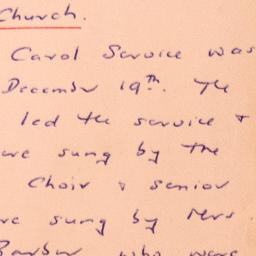 Church.
Carol Service was
December 19th. The
led the service &
were sung by the
Choir & senior
were sung by Mrs
Barbur who were